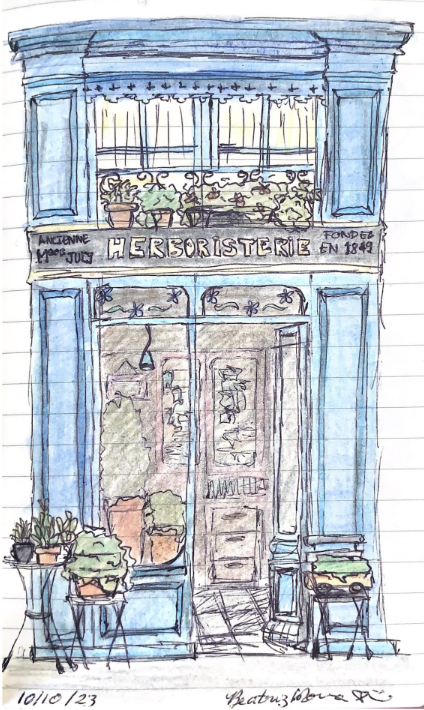 ANCIENNE
JULY
HERBORISTERIE
FONDEE
EN 1849
10/10/23
Beatriz